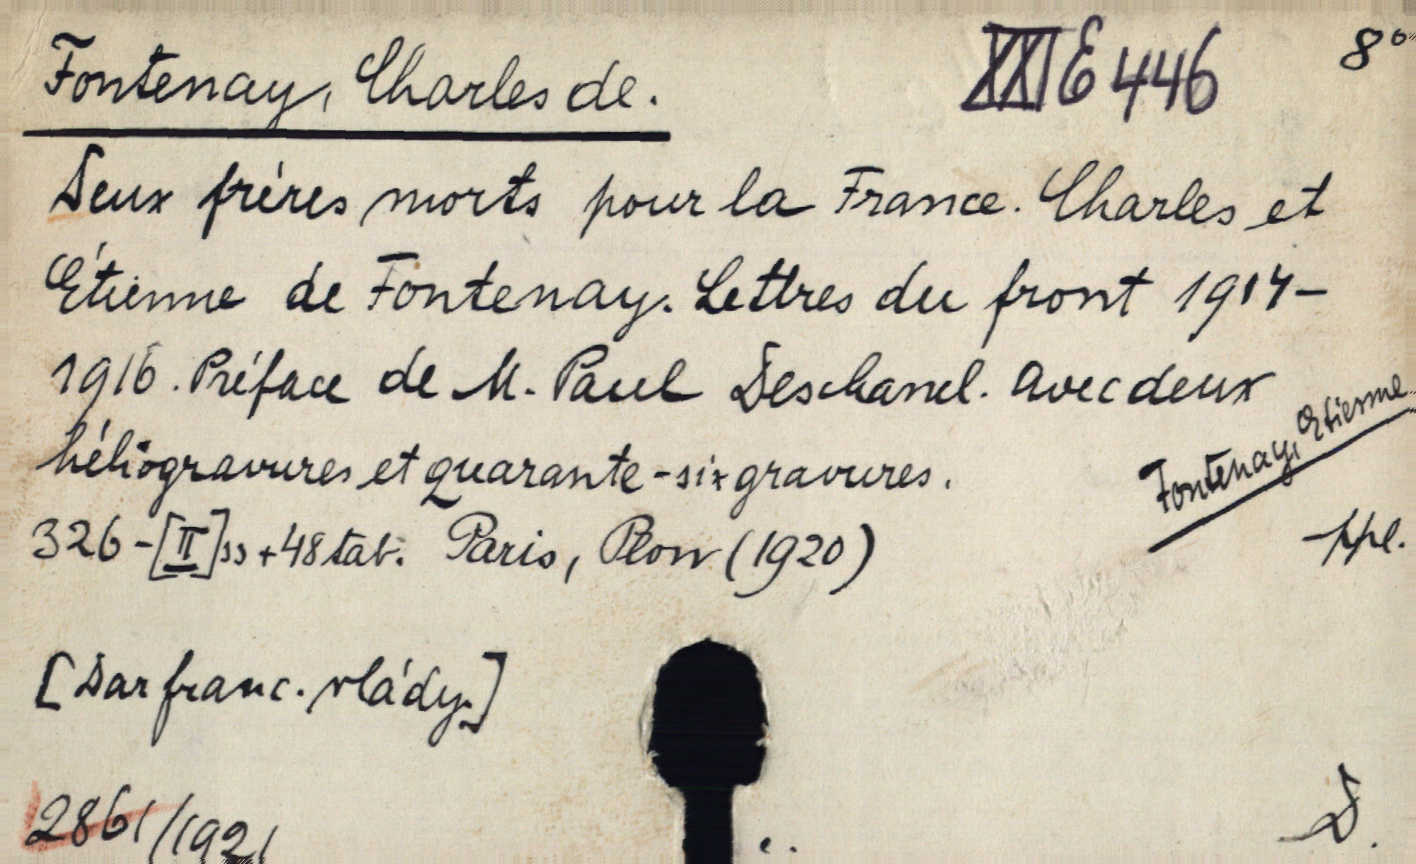 Fontenay, Charles de. XXI E 446 8°
Deux fréres morts pour la France. Charles et
Étienne de Fontenay. Lettres du front 1914-
1916. Préface de M. Paul Deschanel. Avec deux
héliogravures et quarante-six gravures.
Fontenay, Etienne
326-[II]ss+48 tab. Paris, Plon (1920)
[Dar franc. vlády.]
2861/1921
D.